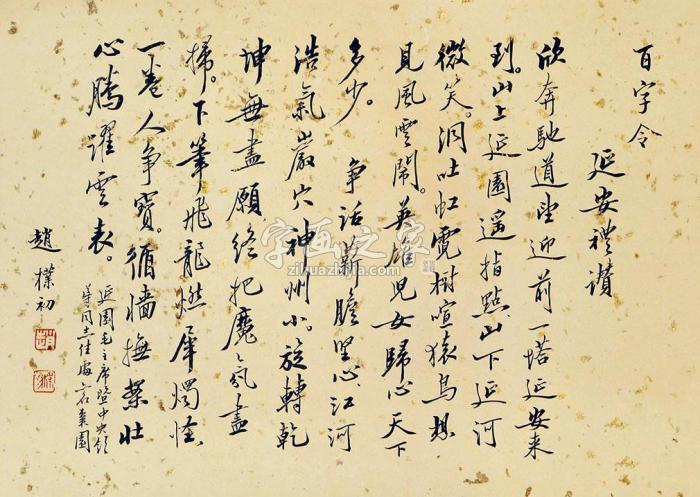 百字令
延安禮讚
欣奔馳道望迎前一塔延安来
到。山上延園遥指點，山下延河
微笑。洞吐虹霓樹喧猿鳥想
見風雲鬧。英雄兒女歸心天下
多少。 争話薪膽堅心江河
浩氣巖穴神州小。旋轉乾
坤無盡願終把魔氛盡
掃。下筆飛龍燃犀燭怪，
一卷人争寶。循墙撫槧壮
心騰躍雲表。
延園毛主席暨中央領
導同志住處一名棗園
趙樸初
字画之家
zihuazhijia.com